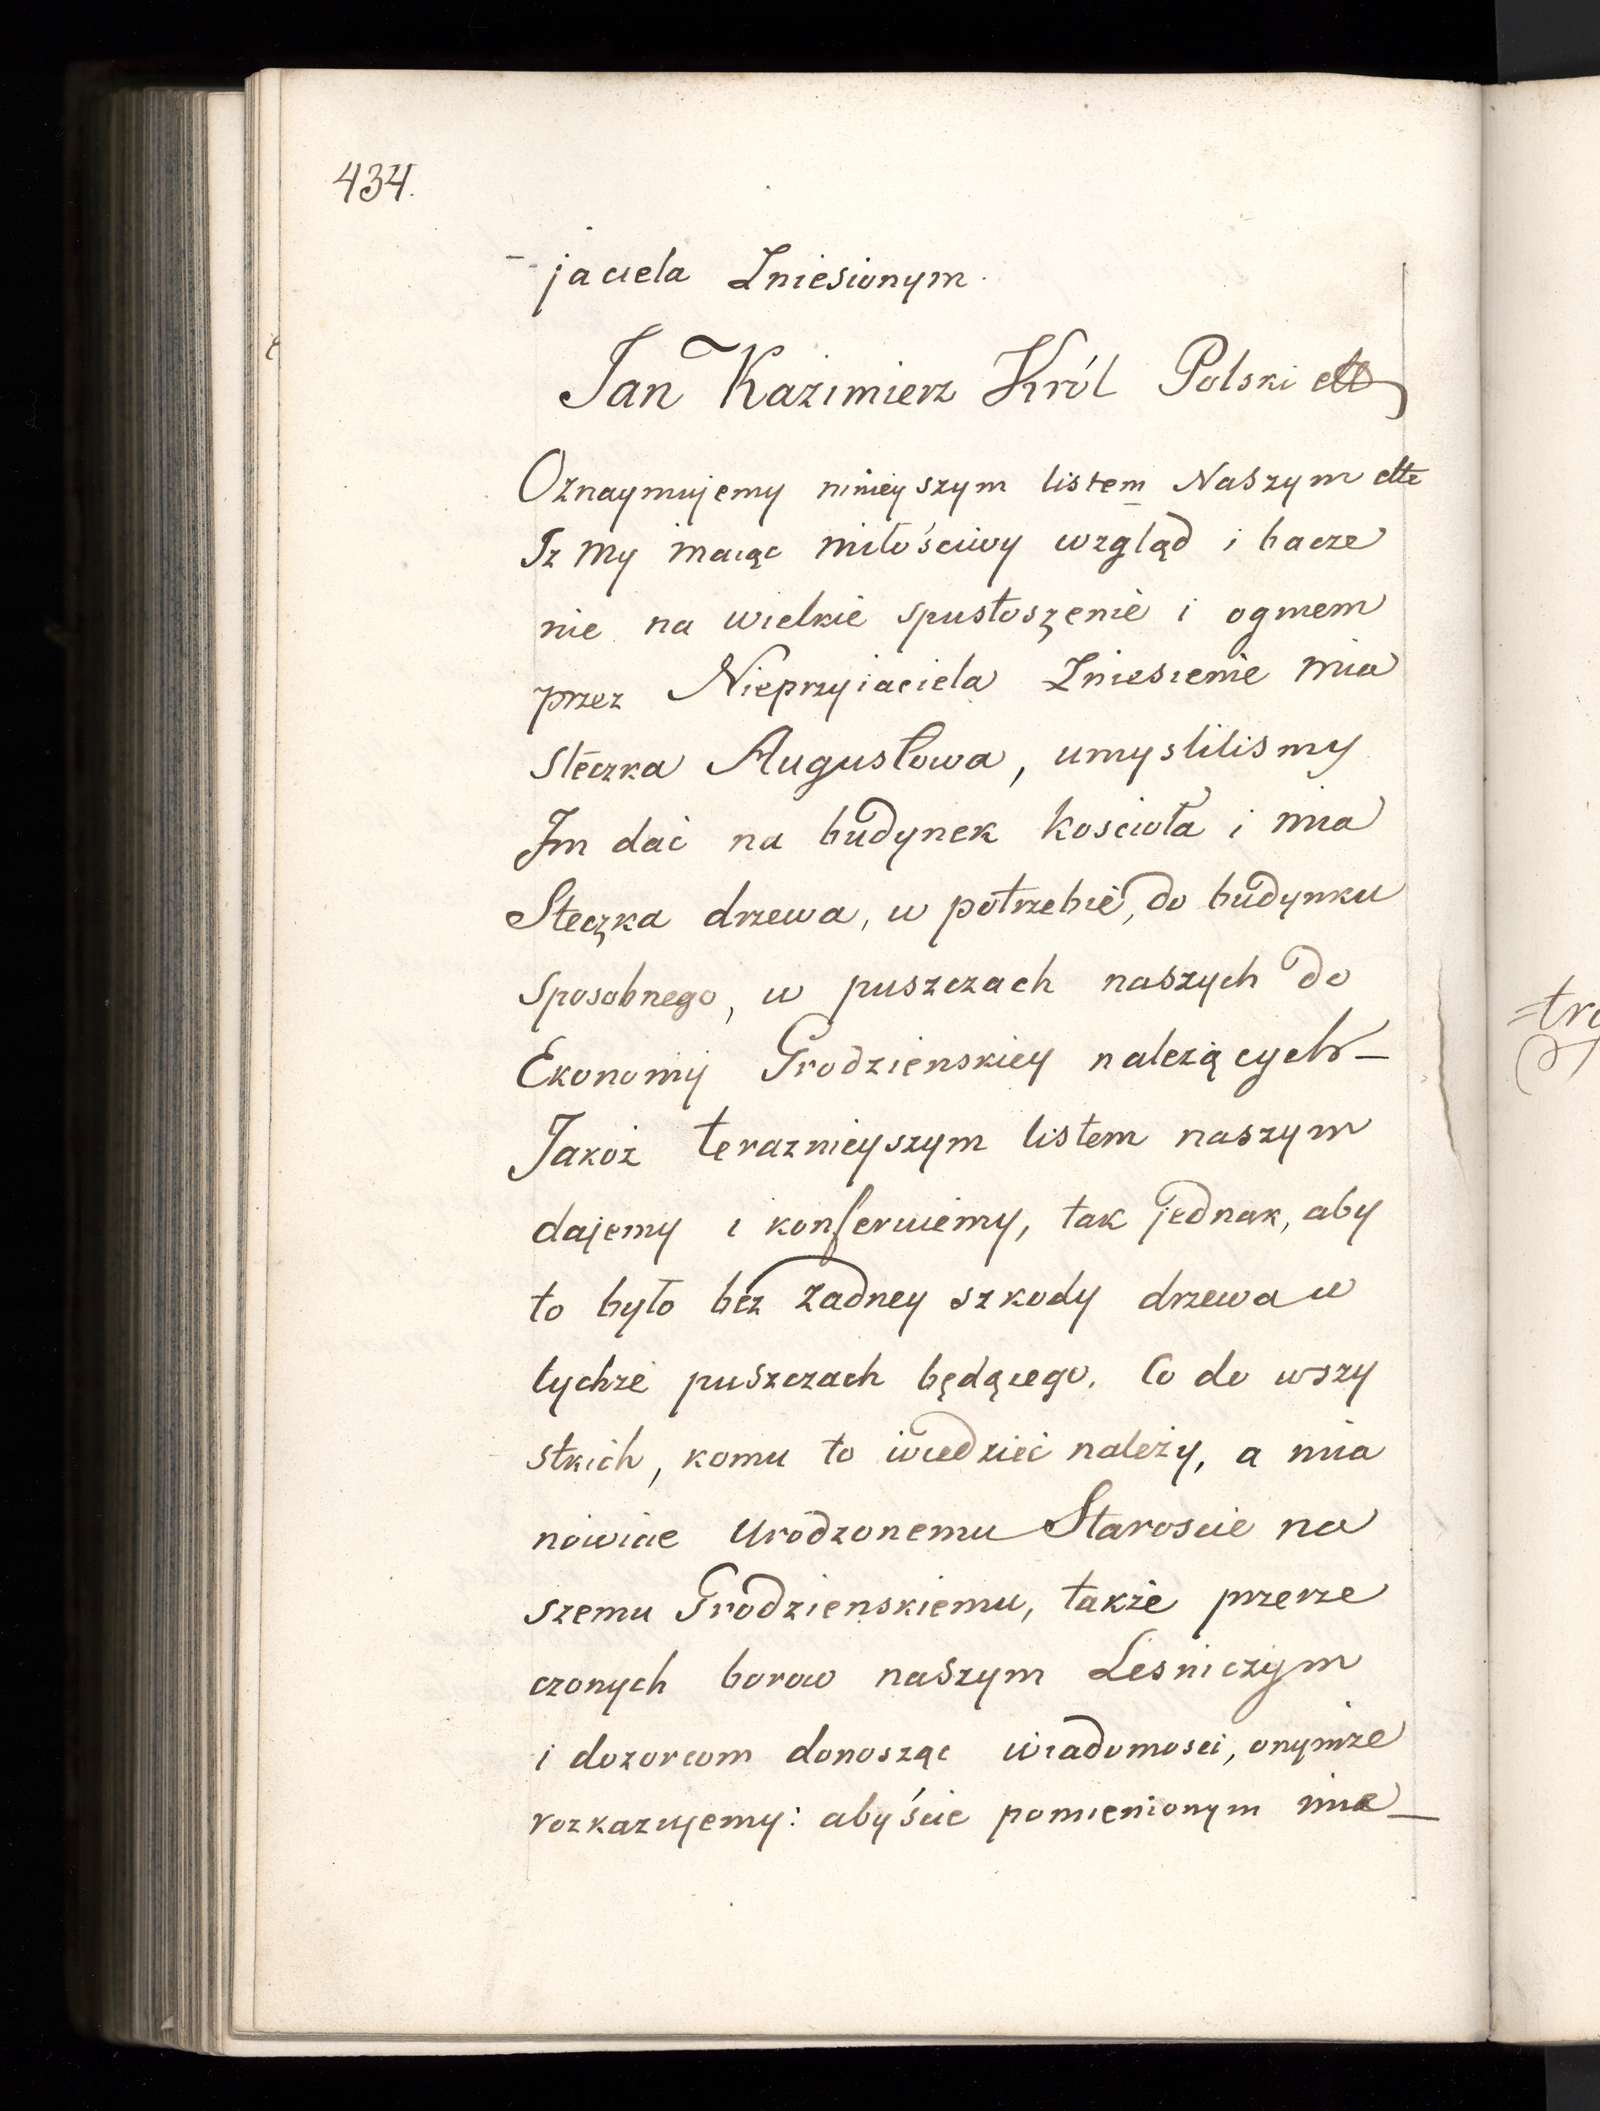 434.
- jaciela Zniesionym.
Jan Kazimierz Król Polski ettc
Oznaymujemy niniey szym listem Naszym ettc
Iz My maiąc miłościwy wzgląd i bacze
nie na wielkie spustoszenie i ogniem
przez Nieprzyiaciela Zniesienie mia
steczka Augustowa, umyslilismy
Im dać na budynek kościoła i mia
Steczka drzewa, w potrzebie, do budynku
sposobnego, w puszczach naszych do
Ekonomij Grodzienskiey należących –
Jakoż teraznieyszym listem naszym
dajemy i konferuiemy, tak jednak, aby
to było bez żadney szkody drzewa w
tychże puszczach będącego. Co do wszy
stkich, komu to wiedzieć należy, a mia
nowicie Urodzonemu Staroscie na
szemu Grodzienskiemu, także przerze
czonych borow naszym Lesniczym
i dozorcom donosząc wiadomosci, onymże
rozkazujemy: abyście pomienionym mia –
=tra